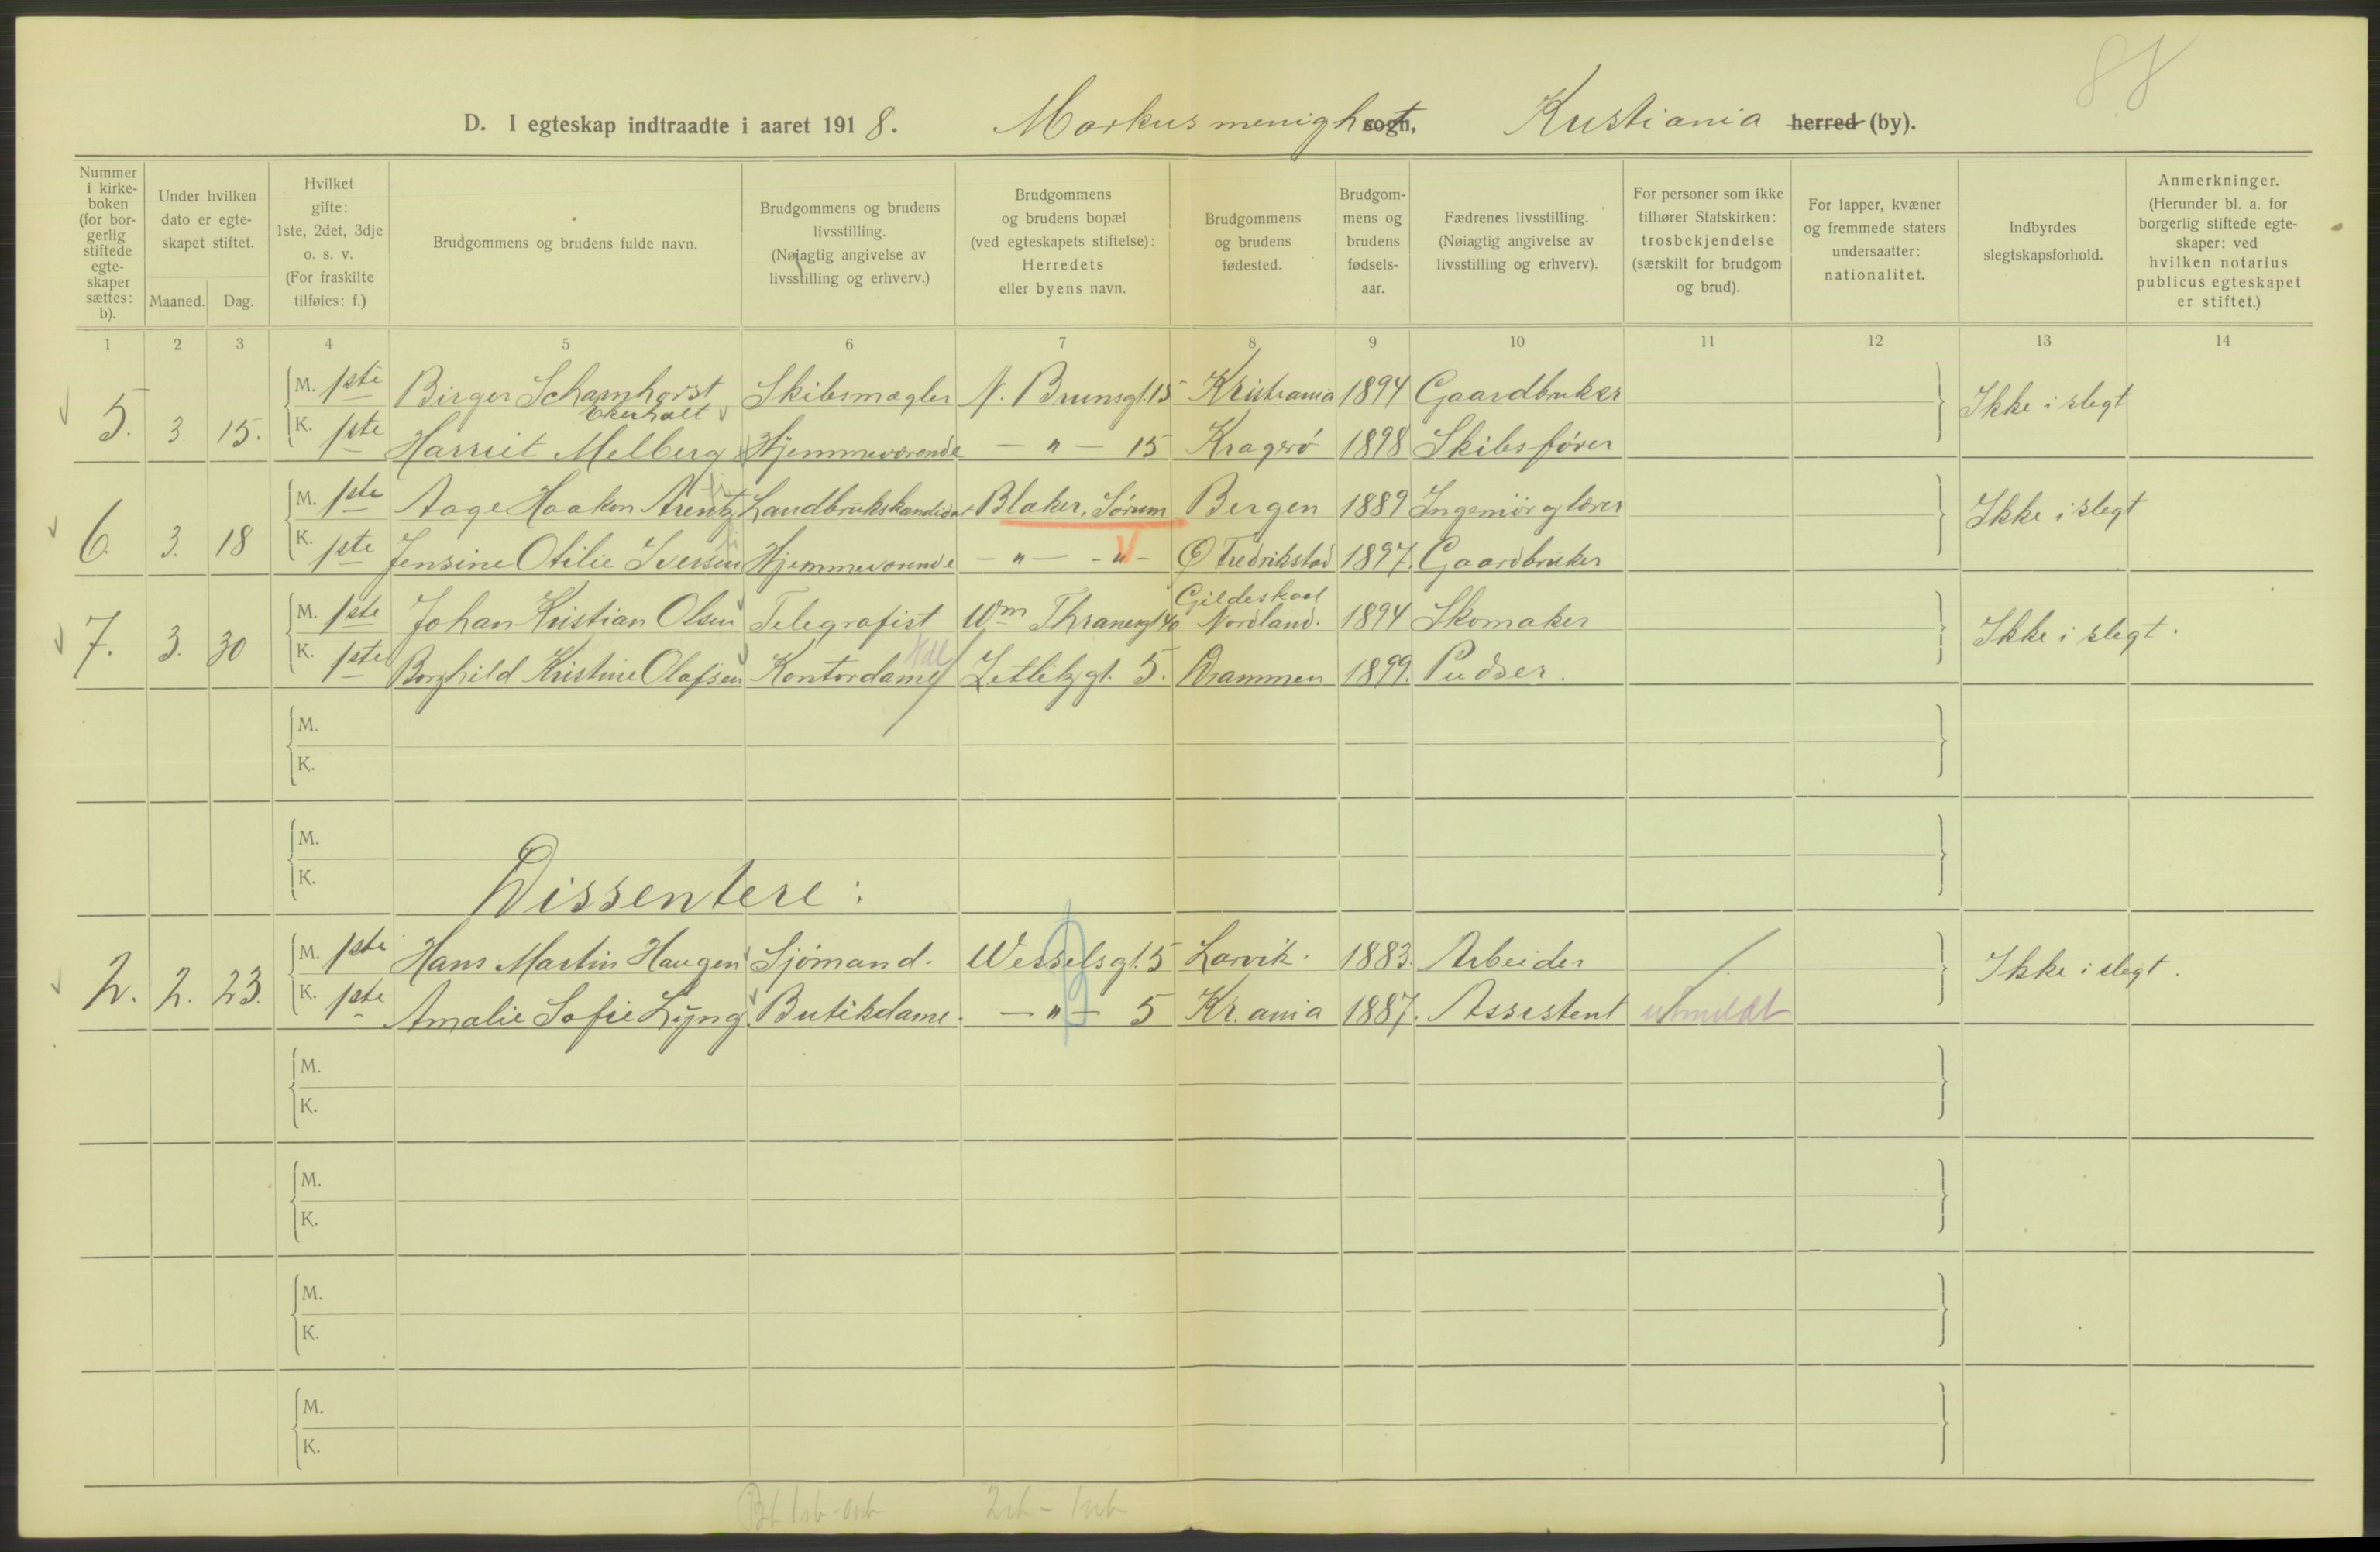 88
D. I egteskap indtraadte i aaret 1918. Markus menighet sogn, Kristiania herred (by).
Nummer i kirke-boken (for bor-gerlig stiftede egte-skaper sættes: b).
Under hvilken dato er egte-skapet stiftet.
Maaned. Dag.
Hvilket gifte: 1ste, 2det, 3dje o. s. v. (For fraskilte tilføies: f.)
Brudgommens og brudens fulde navn.
Brudgommens og brudens livsstilling. (Nøiagtig angivelse av livsstilling og erhverv.)
Brudgommens og brudens bopæl (ved egteskapets stiftelse): Herredets eller byens navn.
Brudgommens og brudens fødested.
Brudgom-mens og brudens fødsels-aar.
Fædrenes livsstilling. (Nøiagtig angivelse av livsstilling og erhverv).
For personer som ikke tilhører Statskirken: trosbekjendelse (særskilt for brudgom og brud).
For lapper, kvæner og fremmede staters undersaatter: nationalitet.
Indbyrdes slegtskapsforhold.
Anmerkninger. (Herunder bl. a. for borgerlig stiftede egte-skaper: ved hvilken notarius publicus egteskapet er stiftet.)
1 2 3 4 5 6 7 8 9 10 11 12 13 14
5. 3 15. M. 1ste Birger Scharnhorst Ekerholt Skibsmægler N. Brunsgt. 15 Kristiania 1894 Gaardbruker Ikke i slegt
K. 1ste Harriet Melberg Hjemmeværende — " — 15 Kragerö 1898 Skibsfører
6. 3. 18 M. 1ste Aage Haakon Arentz Landbrukskandidat Blaker, Sörum Bergen 1889 Ingeniör og lærer Ikke i slegt
K. 1ste Jensine Otilie Iversen Hjemmeværende — " — - " - Ø Fredrikstad 1897. Gaardbruker
7. 3. 30 M. 1ste Johan Kristian Olsen Telegrafist Wm Thranesgt 40 Gildeskaal Nordland. 1894 Skomaker Ikke i slegt.
K. 1ste Borghild Kristine Olafsen Kontordame Hdl Zetlitzgt. 5. Drammen 1899. Pudser.
M.
K.
M.
K.
Dissentere:
2. 2. 23. M. 1ste Hans Martin Haugen Sjömand. Wesselsgt. 5 Larvik. 1883. Arbeider Ikke i slegt.
K. 1ste Amalie Sofie Lyng Butikdame. — " — 5 Kr.ania 1887. Assistent utmeldt
M.
K.
M.
K.
M.
K.
M.
K.